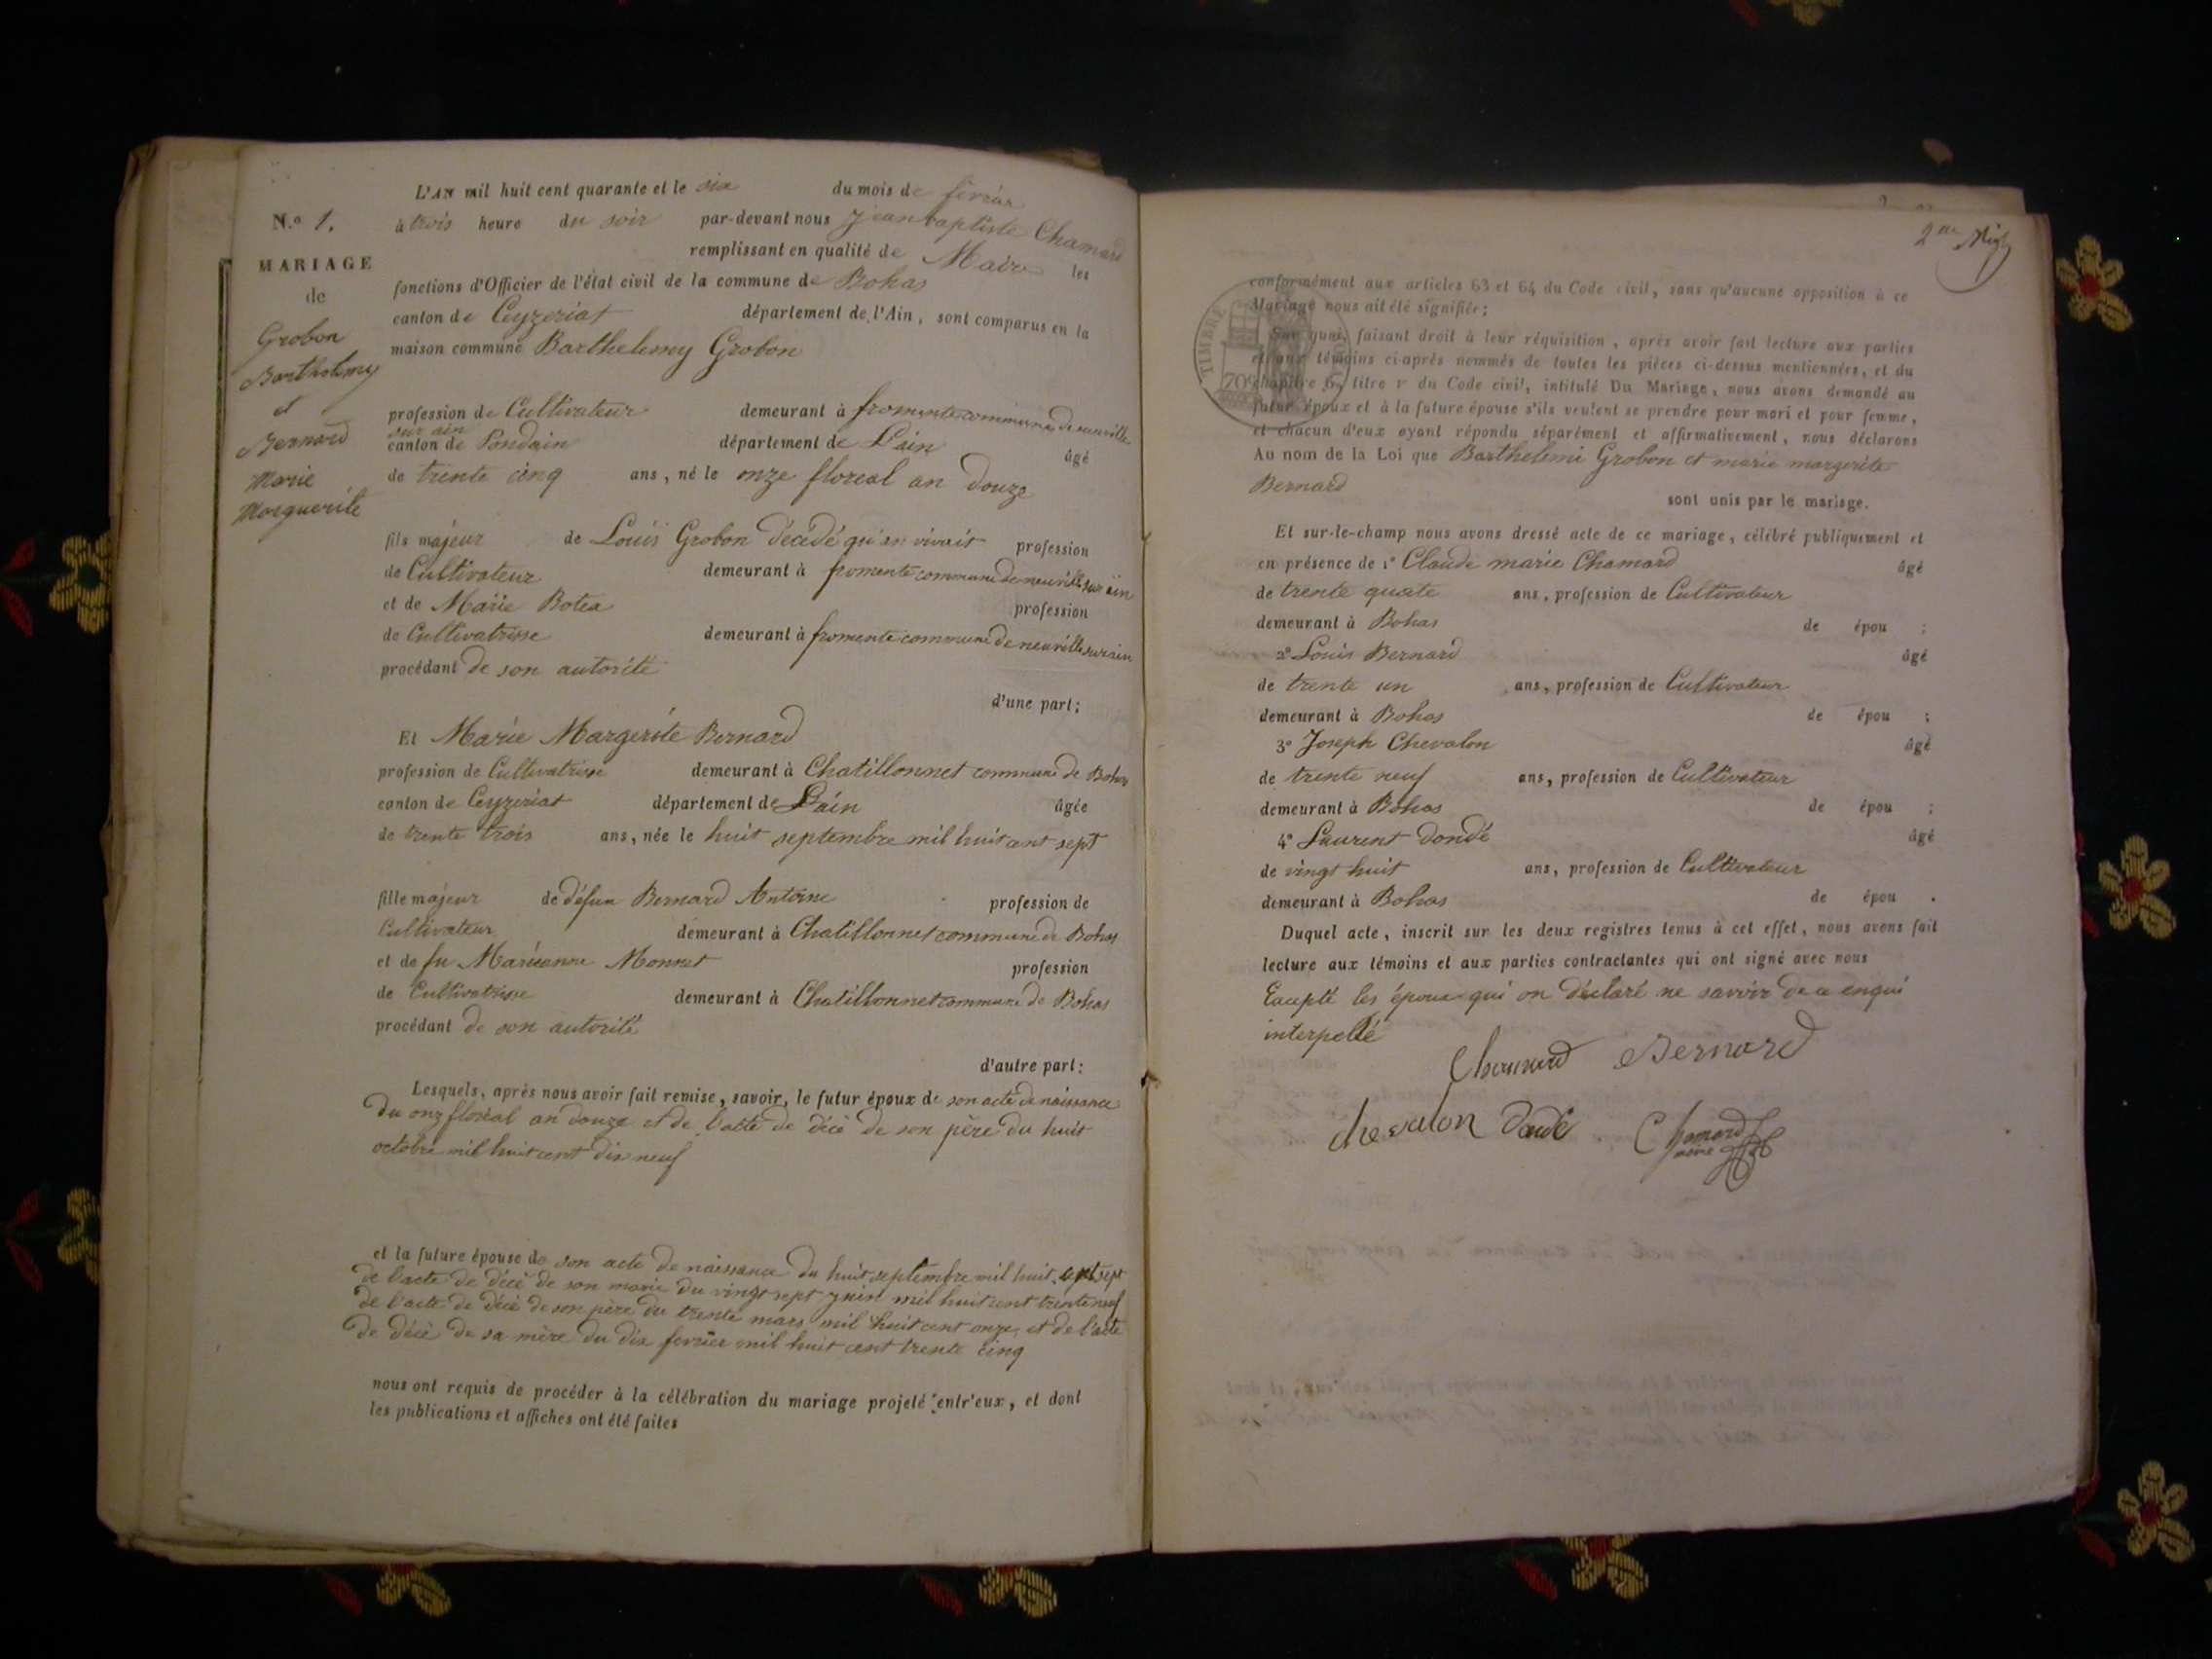 L'AN mil huit cent quarante et le six du mois de févriar
N.º 1. à trois heure du soir par-devant nous jean baptiste Chamard
remplissant en qualité de Maire les
MARIAGE
fonctions d'Officier de l'état civil de la commune de Bohas
de
canton de Ceyzeriat département de l'Ain, sont comparus en la
Grobon
maison commune Barthelemy Grobon
Barthelemy
et
profession de Cultivateur demeurant à fromente commune de neuville
sur ain
Bernard
canton de Pondain département de Lain âgé
Marie
de trente cinq ans, né le onze floreal an douze
Marguerite
fils majeur de Louis Grobon décédé qu'an vivait profession
de Cultivateur demeurant à fromente commune de neuville sur ain
et de Marie Botex profession
de Cultivatrisse demeurant à fromente commune de neuville sur ain
procédant de son autorité
d'une part;
Et Marie Margerite Bernard
profession de Cultivatrisse demeurant à Chatillonnet commune de Bohas
canton de Ceyzeriat département de Lain âgée
de trente trois ans, née le huit septembre mil huit cent sept
fille majeur de défun Bernard Antoine profession de
Cultivateur demeurant à Chatillonnet commune de Bohas
et de fu Marieanne Monnet profession
de Cultivatrisse demeurant à Chatillonnet commune de Bohas
procédant de son autorité
d'autre part:
Lesquels, après nous avoir fait remise, savoir, le futur époux de son acte de naissance
du onz floréal an douze et de l'acte de décè de son père du huit
octobre mil huit cent dix neuf
et la future épouse de son acte de naissance du huit septembre mil huit cent sept
de l'acte de décè de son marie du vingt sept juin mil huit cent trente neuf
de l'acte de décè de son père du trente mars mil huit cent onze, et de l'acte
de décè de sa mère du dix fevrier mil huit cent trente cinq
nous ont requis de procéder à la célébration du mariage projeté entr'eux, et dont
les publications et affiches ont été faites
2me
conformément aux articles 63 et 64 du Code civil, sans qu'aucune opposition à ce
Mariage nous ait été signifiée;
TIMBRE
70c
Sur quoi, faisant droit à leur réquisition, après avoir fait lecture aux parties
et aux témoins ci-après nommés de toutes les pièces ci-dessus mentionnées, et du
chapitre 6, titre v du Code civil, intitulé Du Mariage, nous avons demandé au
futur époux et à la future épouse s'ils veulent se prendre pour mari et pour femme,
et chacun d'eux ayant répondu séparément et affirmativement, nous déclarons
Au nom de la Loi que Barthelemi Grobon et marie margerite
Bernard
sont unis par le mariage.
Et sur-le-champ nous avons dressé acte de ce mariage, célébré publiquement et
en présence de 1º Claude marie Chamard âgé
de trente quate ans, profession de Cultivateur
demeurant à Bohas de épou ;
2º Louis Bernard âgé
de trente un ans, profession de Cultivateur
demeurant à Bohas de épou ;
3º Joseph Chevalon âgé
de trente neuf ans, profession de Cultivateur
demeurant à Bohas de épou ;
4º Laurent dondé âgé
de vingt huit ans, profession de Cultivateur
demeurant à Bohas de épou .
Duquel acte, inscrit sur les deux registres tenus à cet effet, nous avons fait
lecture aux témoins et aux parties contractantes qui ont signé avec nous
Excepté les époux qui on déclaré ne savoir de ce enqui
interpellé
Chamard Bernard
chevalon dondé Chamard
maire